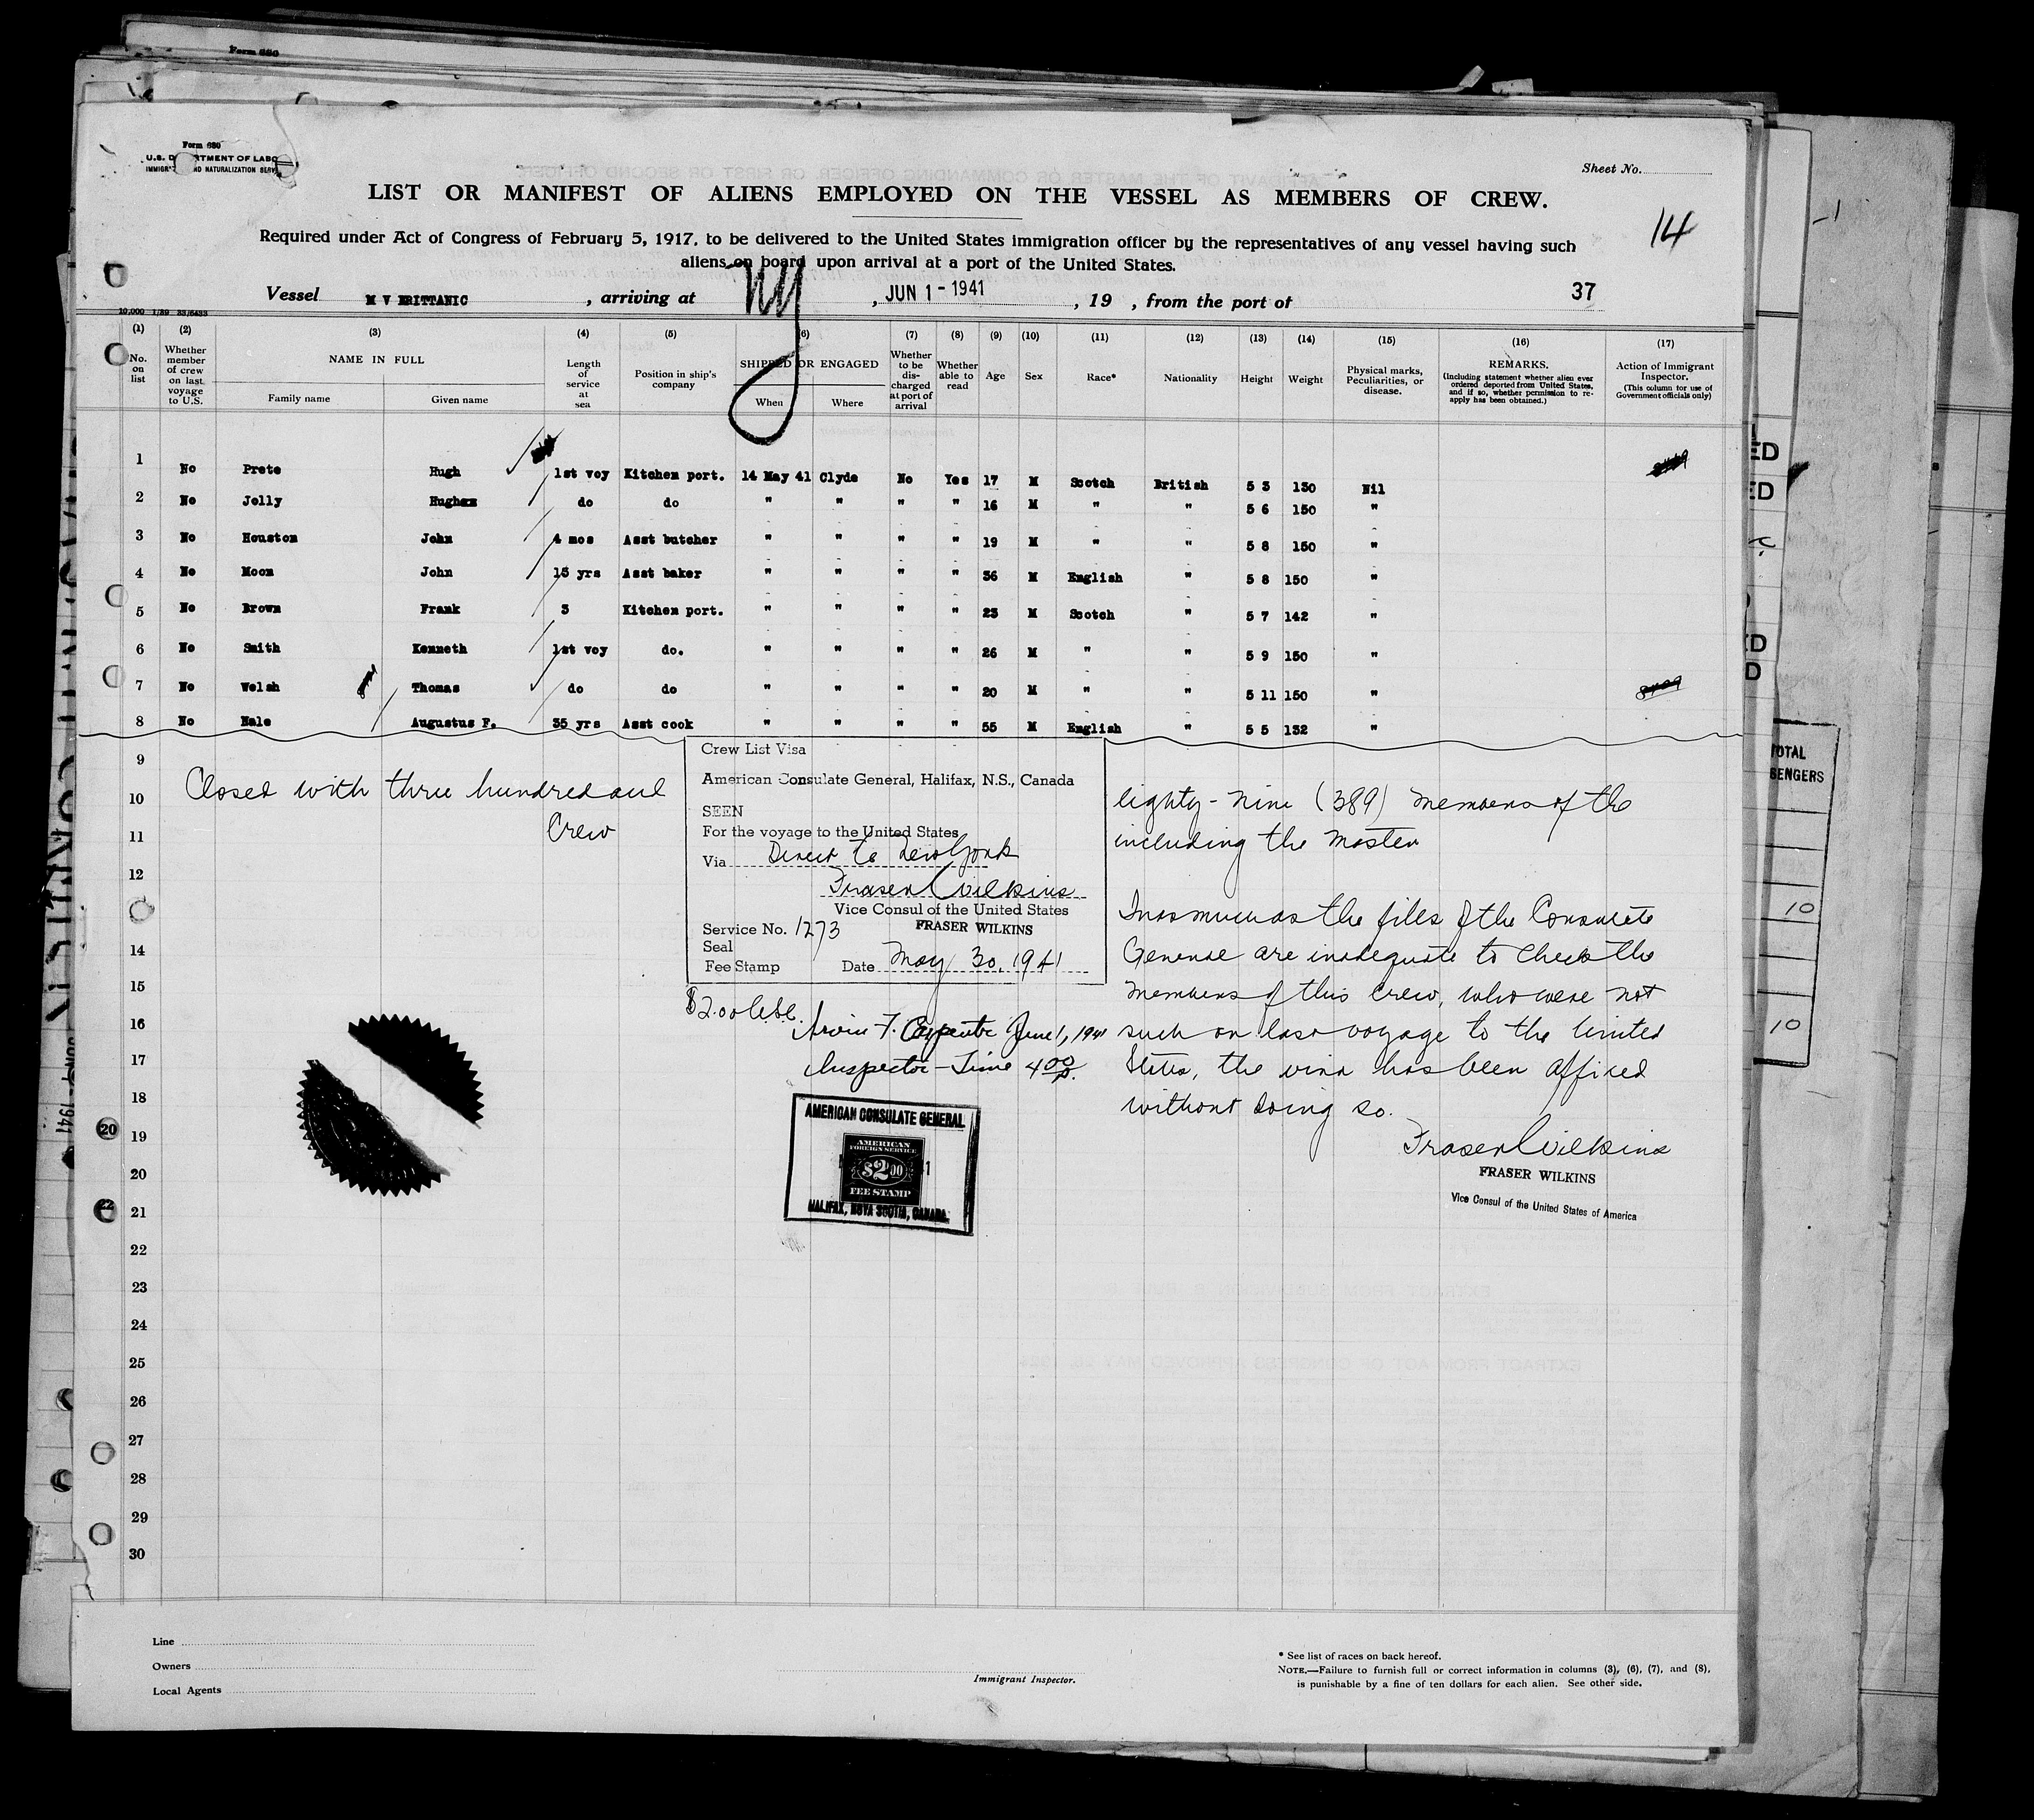 Form 680
Form 680
U.S. D RTMENT OF LABO
IMMIGR ND NATURALIZATION SERV
Sheet No.
LIST OR MANIFEST OF ALIENS EMPLOYED ON THE VESSEL AS MEMBERS OF CREW.
14
Required under Act of Congress of February 5, 1917, to be delivered to the United States immigration officer by the representatives of any vessel having such
aliens on board upon arrival at a port of the United States.
Vessel M V BRITTANIC, arriving at NY, JUN 1 - 1941, 19 , from the port of 37
10,000 1/39
(1) (2) (3) (4) (5) (6) (7) (8) (9) (10) (11) (12) (13) (14) (15) (16) (17)
No. on list
Whether member of crew on last voyage to U.S.
NAME IN FULL
Family name
Given name
Length of service at sea
Position in ship's company
SHIPPED OR ENGAGED
When
Where
Whether to be discharged at port of arrival
Whether able to read
Age
Sex
Race*
Nationality
Height
Weight
Physical marks, Peculiarities, or disease.
REMARKS.
(Including statement whether alien ever ordered deported from United States, and if so, whether permission to re-apply has been obtained.)
Action of Immigrant Inspector.
(This column for use of Government officials only)
1 No Prete Hugh 1st voy Kitchen port. 14 May 41 Clyde No Yes 17 M Scotch British 5 3 130 Nil
2 No Jolly Hughes do do " " " " 16 M " " 5 6 150 "
3 No Houston John 4 mos Asst butcher " " " " 19 M " " 5 8 150 "
4 No Moon John 15 yrs Asst baker " " " " 36 M English " 5 8 150 "
5 No Brown Frank 3 Kitchen port. " " " " 23 M Scotch " 5 7 142 "
6 No Smith Kenneth 1st voy do. " " " " 26 M " " 5 9 150 "
7 No Welsh Thomas do do " " " " 20 M " " 5 11 150 "
8 No Hale Augustus F. 35 yrs Asst cook " " " " 55 M English " 5 5 132 "
9
10
11
12
14
15
16
17
18
19
20
21
22
23
24
25
26
27
28
29
30
Closed with three hundred and
Crew
Crew List Visa
American Consulate General, Halifax, N.S., Canada
SEEN
For the voyage to the United States
Via Direct to New York
Fraser Wilkins
Vice Consul of the United States
Service No. 1273 FRASER WILKINS
Seal
Fee Stamp Date May 30, 1941
eighty-nine (389) members of the
including the Master
Inasmuch as the files of the Consulate
General are inadequate to check the
members of this crew, who were not
such on last voyage to the United
States, the visa has been affixed
without doing so.
Fraser Wilkins
FRASER WILKINS
Vice Consul of the United States of America
$2.00
June 1, 1941
Inspector - Time 4 00 p.
AMERICAN CONSULATE GENERAL
AMERICAN
FOREIGN SERVICE
$2 00
FEE STAMP
HALIFAX, NOVA SCOTIA, CANADA.
Line
Owners
Local Agents
Immigrant Inspector.
* See list of races on back hereof.
NOTE.—Failure to furnish full or correct information in columns (3), (6), (7), and (8),
is punishable by a fine of ten dollars for each alien. See other side.
TOTAL
SENGERS
10
10
20
22